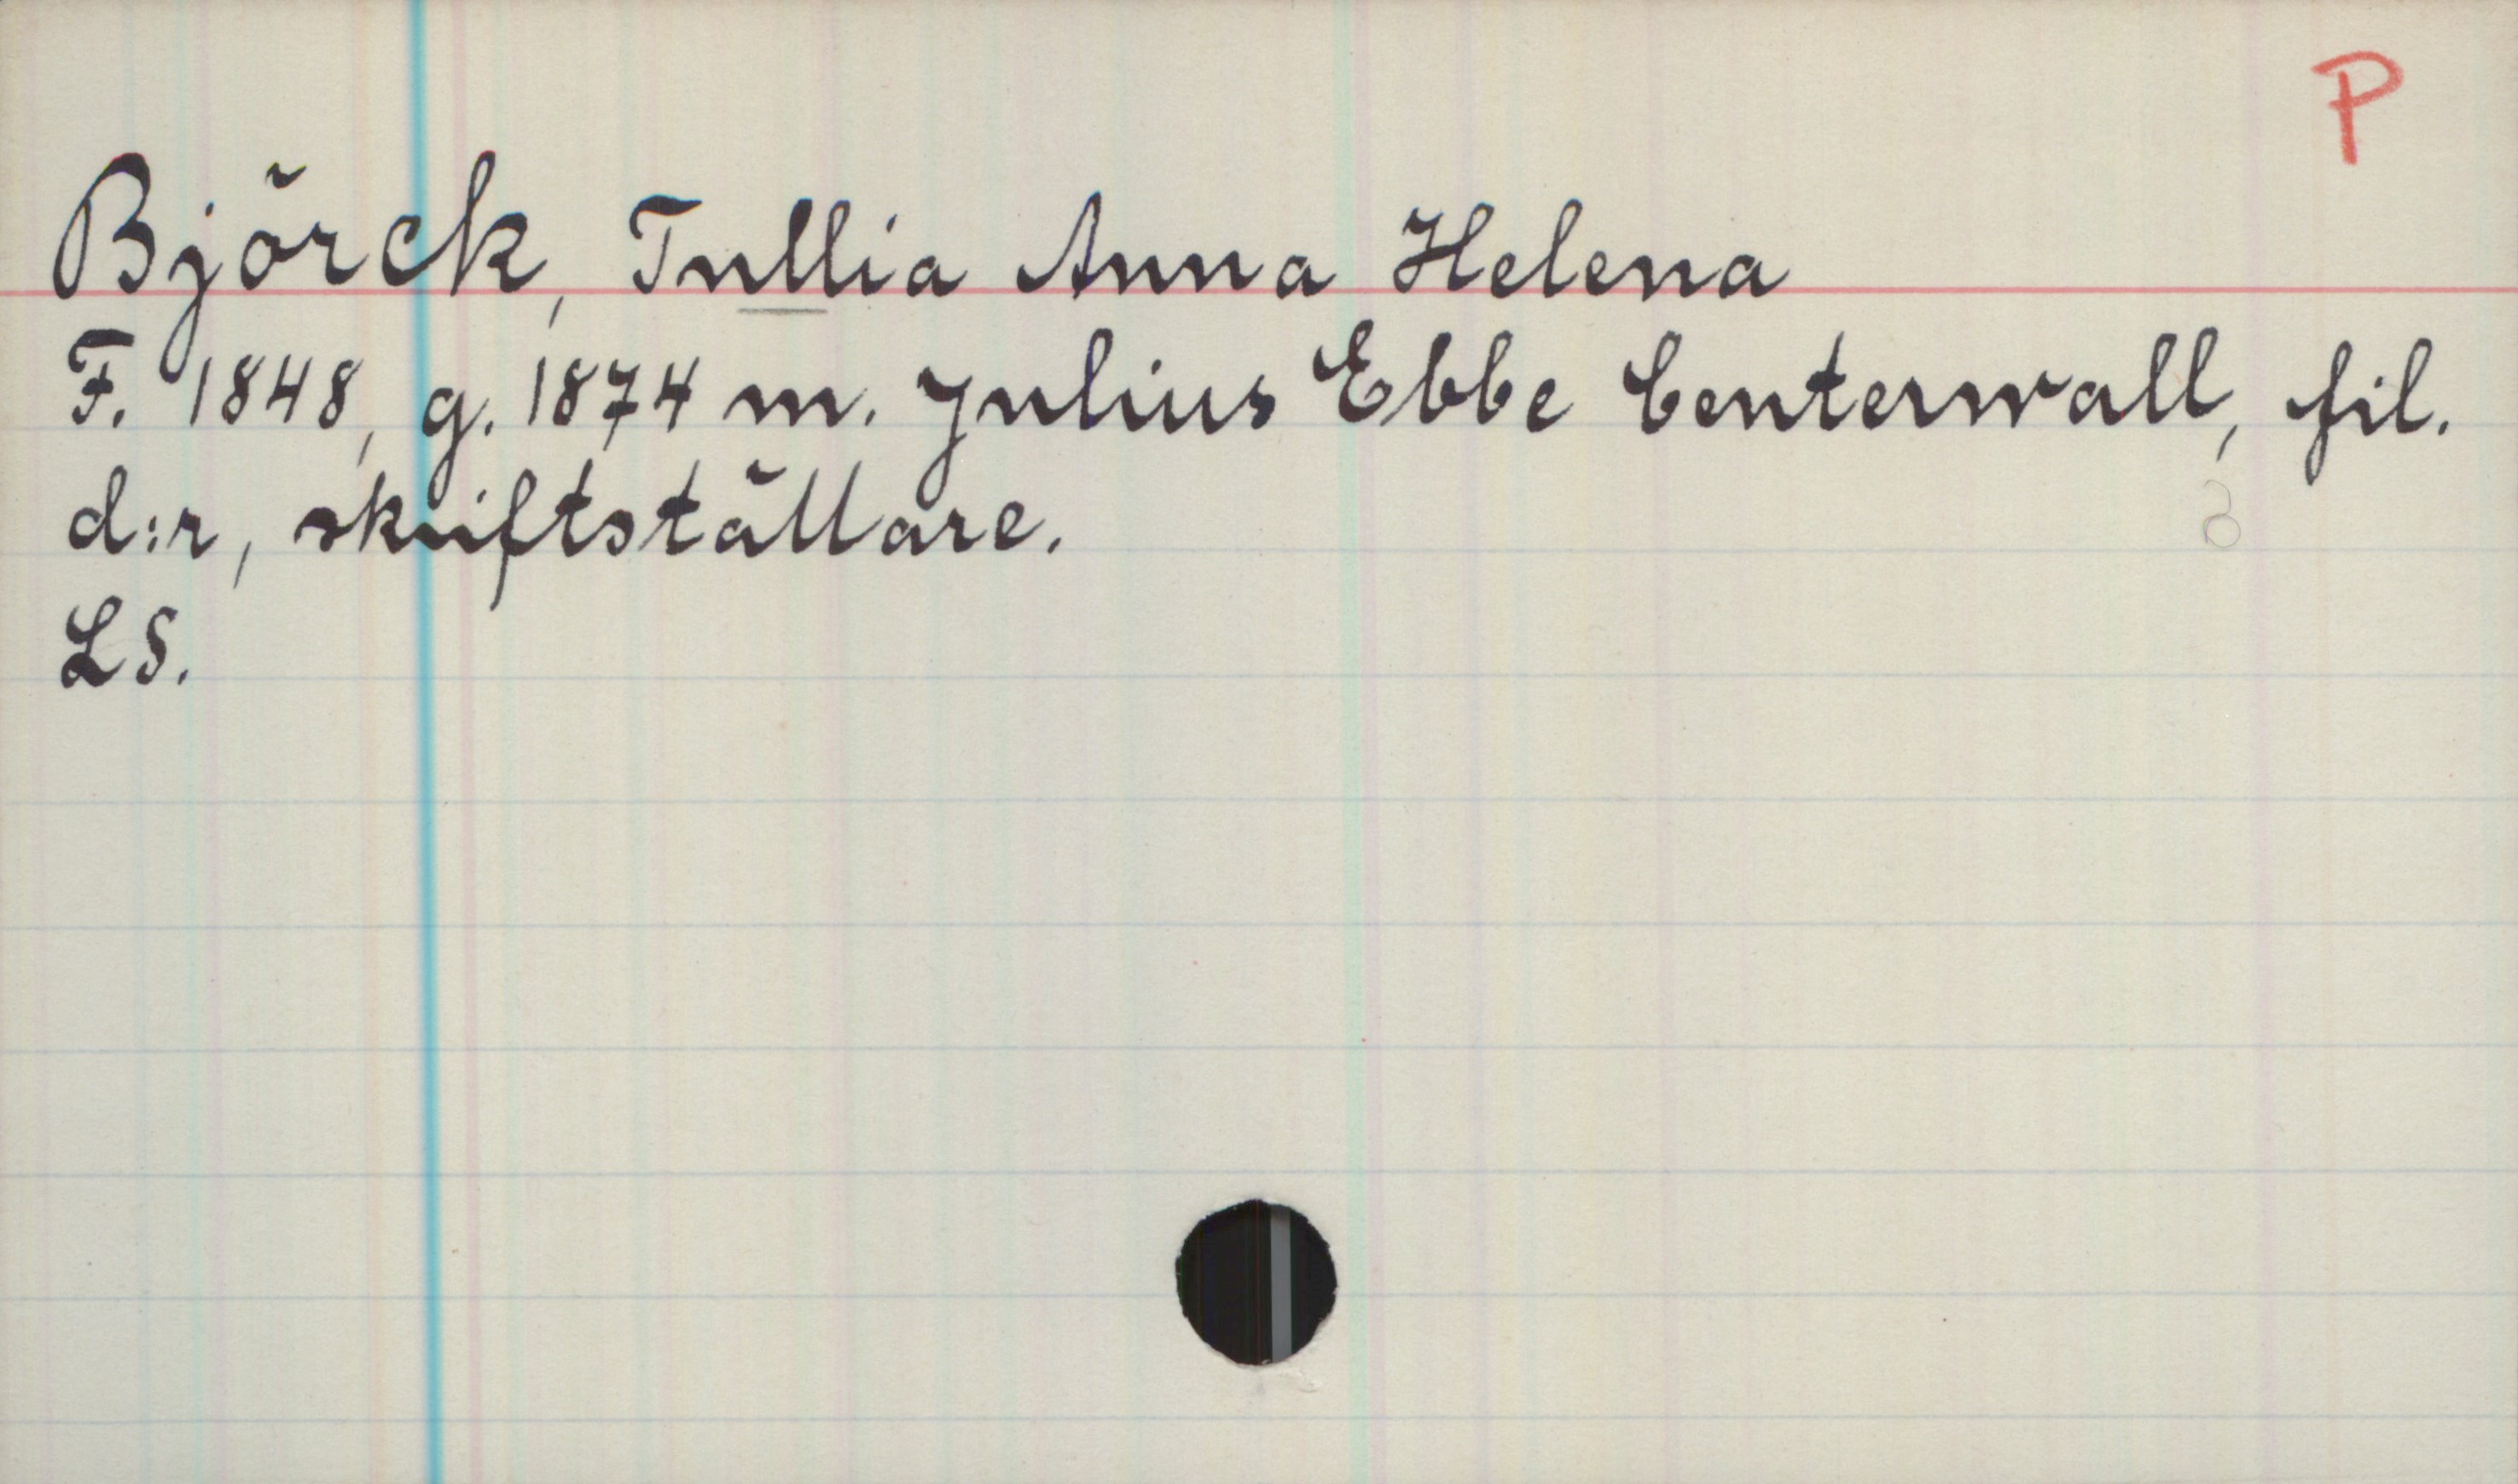 P
Björck, Tullia Anna Helena
F. 1848, g. 1874 m. Julius Ebbe Centerwall, fil.
d:r, skriftställare.
LS.